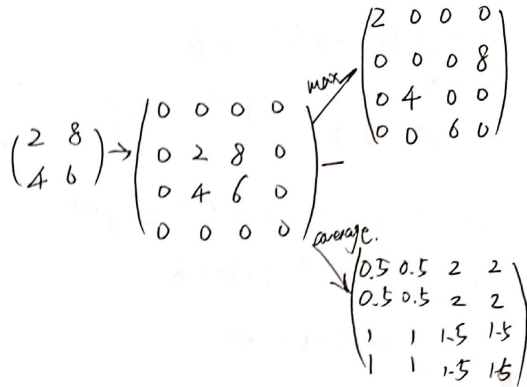 2 8
4 6
0 0 0 0
0 2 8 0
0 4 6 0
0 0 0 0
max
2 0 0 0
0 0 0 8
0 4 0 0
0 0 6 0
average.
0.5 0.5 2 2
0.5 0.5 2 2
1 1 1.5 1.5
1 1 1.5 1.5